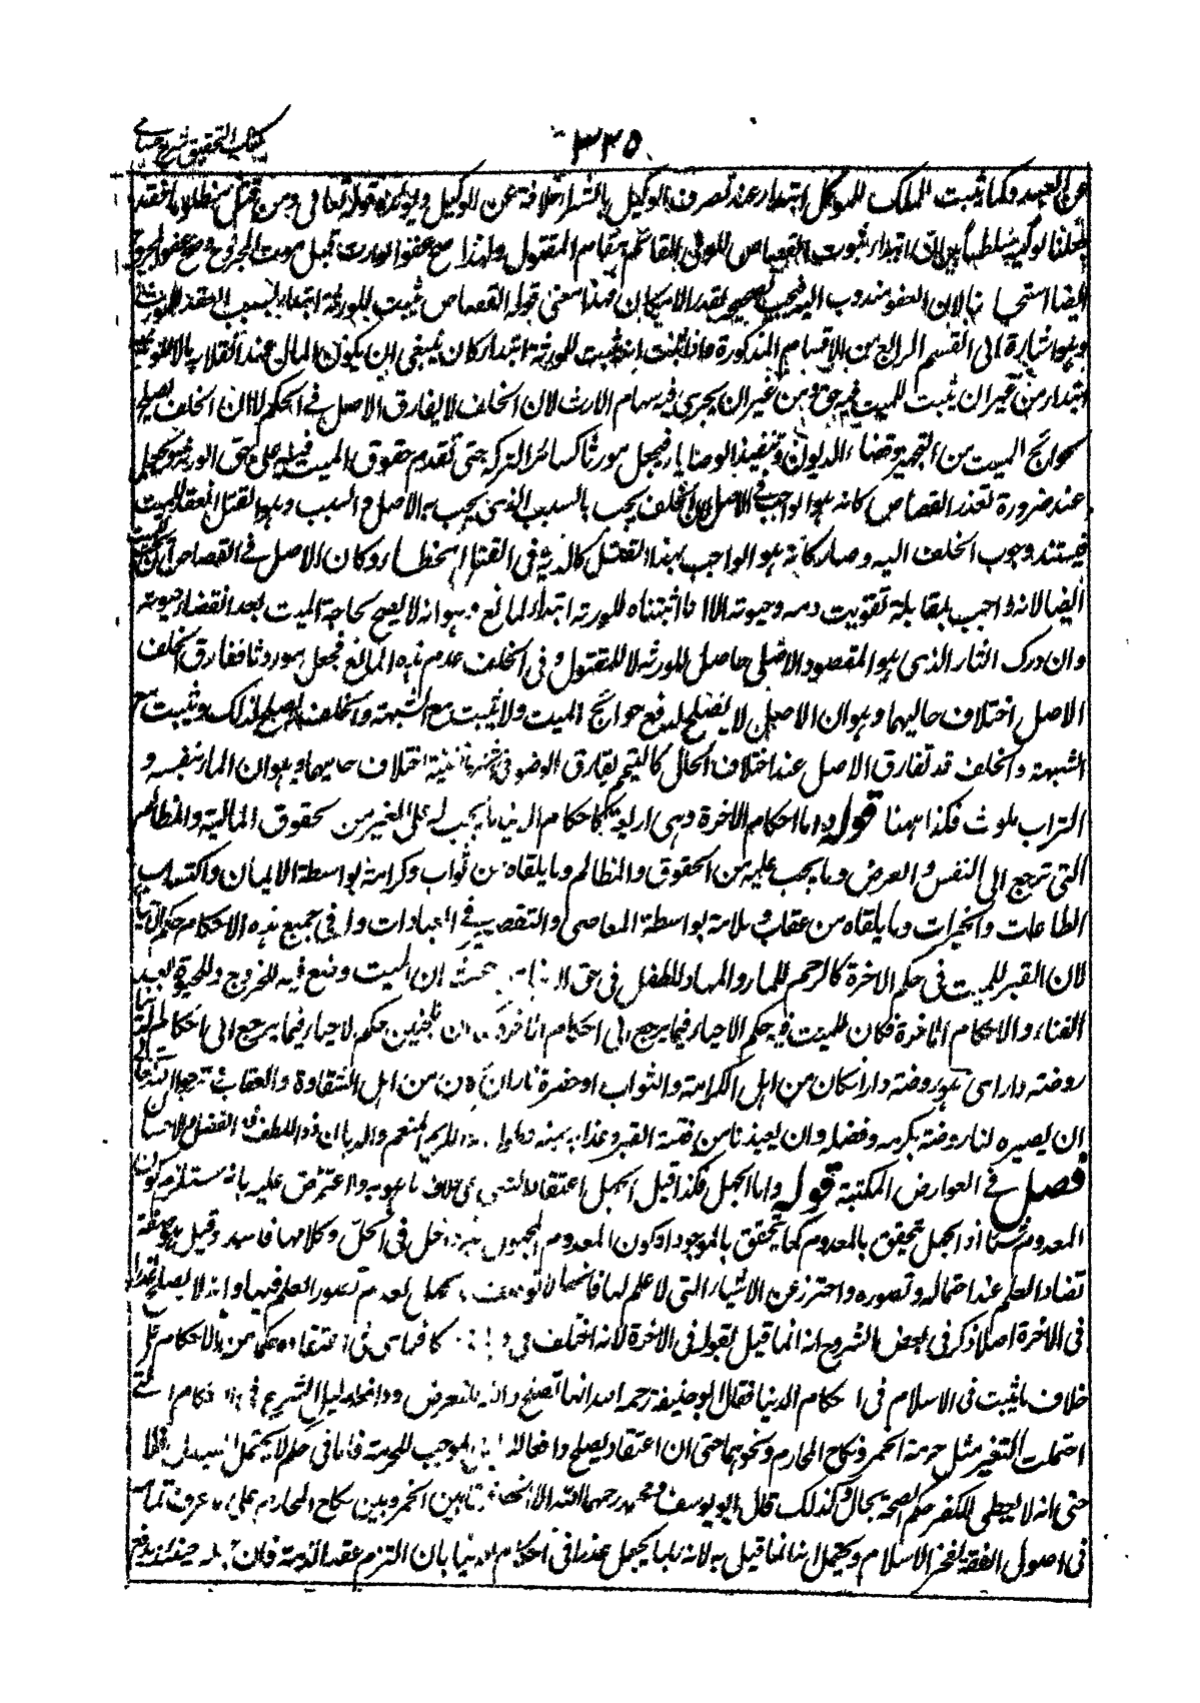 كتاب التحقيق شرح حسامي
٣٣٥
عن العبد وكما يثبت الملك للموكل ابتداء عند تصرف الوكيل بالشراء خلافة عن الوكيل ويؤيده قوله تعالى ومن قتل مظلوما فقد
جعلنا لوليه سلطانا بين ان ابتداء ثبوت القصاص للولى القائم مقام المقتول ولهذا صح عفو الوارث قبل موت المجروح وصح عفو المجروح
ايضا استحسانا لان العفو مندوب اليه فيجب تصحيحه بقدر الامكان فهذا معنى قوله القصاص يثبت للورثة ابتداء بسبب انعقد للمورث
وهو اشارة الى القسم الرابع من الاقسام المذكورة واذا ثبت انه يثبت للورثة ابتداء كان ينبغى ان يكون المال عند انقلابه بالصلح
ابتداء من غير ان يثبت للميت فيه حق ومن غير ان يجرى فيه سهام الارث لان الخلف لا يفارق الاصل فى الحكم الا ان الخلف يصلح
لحوائج الميت من التجهيز وقضاء الديون وتنفيذ الوصايا فيجعل موروثا كسائر التركة حتى تقدم حقوق الميت فيه على حق الورثة ويجعل
عند ضرورة تعذر القصاص كانه هو الواجب فى الاصل لان الخلف يجب بالسبب الذى يجب به الاصل والسبب وهو القتل انعقد للميت
فيستند وجوب الخلف اليه وصار كانه هو الواجب بهذا القتل كالدية فى القتل الخطاء وكان الاصل فى القصاص
ايضا لانه واجب بمقابلة تفويت دمه وحيوته الا انا اثبتناه للورثة ابتداء لمانع وهو انه لا يصح لحاجة الميت بعد انقضاء حيوته
وان درك الثار الذى هو المقصود الاصلى حاصل للورثة لا للمقتول وفى الخلف عدم هذه الموانع فجعل موروثا ففارق الخلف
الاصل لاختلاف حاليهما وهو ان الاصل لا يصلح لدفع حوائج الميت ولا يثبت مع الشبهة والخلف يصلح لذلك ويثبت مع
الشبهة والخلف قد يفارق الاصل عند اختلاف الحال كالتيمم يفارق الوضوء فى اشتراط النية لاختلاف حاليهما وهو ان الماء بنفسه و
التراب ملوث فكذا ههنا قوله واما احكام الاخرة وهى اربعة كاحكام الدنيا ما يجب له على الغير من الحقوق المالية والمظالم
التى ترجع الى النفس والعرض وما يجب عليه من الحقوق والمظالم وما يلقاه من ثواب وكرامة بواسطة الايمان واكتساب
الطاعات والخيرات وما يلقاه من عقاب وملامة بواسطة المعاصى والتقصير فى العبادات وله فى جميع هذه الاحكام حكم الاحياء
لان القبر للميت فى حكم الاخرة كالرحم للماء والمهاد للطفل فى حق الدنيا من حيث ان الميت وضع فيه للخروج وللحيوة بعد
الفناء والاحكام الاخرة فكان للميت فيه حكم الاحياء فيما يرجع الى احكام الاخرة كما ان للجنين حكم الاحياء فيما يرجع الى احكام الدنيا
روضة دار اى هو روضة دار ان كان من اهل الكرامة والثواب او حفرة نار ان كان من اهل الشقاوة والعقاب نرجو الله تعالى
ان يصيره لنا روضة بكرمه وفضله وان يعيذنا من فتنة القبر وعذابه بمنه وطوله الكريم المنعم والديان ذو اللطف والفضل والاحسان
فصل فى العوارض المكتسبة قوله واما الجهل فكذا قيل الجهل اعتقاد الشىء على خلاف ما هو به واعترض عليه بانه يستلزم كون
المعدوم شيئا اذ الجهل يتحقق بالمعدوم كما يتحقق بالموجود او كون المعدوم المجهول غير داخل فى الحد وكلاهما فاسد وقيل هو صفة
تضاد العلم عند احتماله وتصوره واحترز عن الاشياء التى لا علم لها فانها لا توصف بالجهل لعدم تصور العلم فيها وانه لا يصلح عذرا
فى الاخرة اصلا ذكر فى بعض الشروح انه انما قيل بقوله فى الاخرة لانه اختلف فى ديانة الكافر اى فى اعتقاده حكما من الاحكام على
خلاف ما يثبت فى الاسلام فى احكام الدنيا فقال ابو حنيفة رحمه الله انها تصلح دافعة للتعرض ودافعة لدليل الشرع فى الاحكام التى
احتملت التغير مثل حرمة الخمر ونكاح المحارم ونحوهما حتى ان اعتقاده يصلح دافعا للدليل الموجب للحرمة فاما فى حكم لا يحتمل التبديل فلا
حتى انه لا يعطى للكفر حكم الصحة بحال وكذلك قال ابو يوسف ومحمد رحمهما الله الا انهما فرقا بين الخمر وبين نكاح المحارم على ما عرف تمامه
فى اصول الفقه لفخر الاسلام ويحتمل انه انما قيل به لانه ربما يجعل عذرا فى احكام الدنيا بان التزم عقد الذمة فان